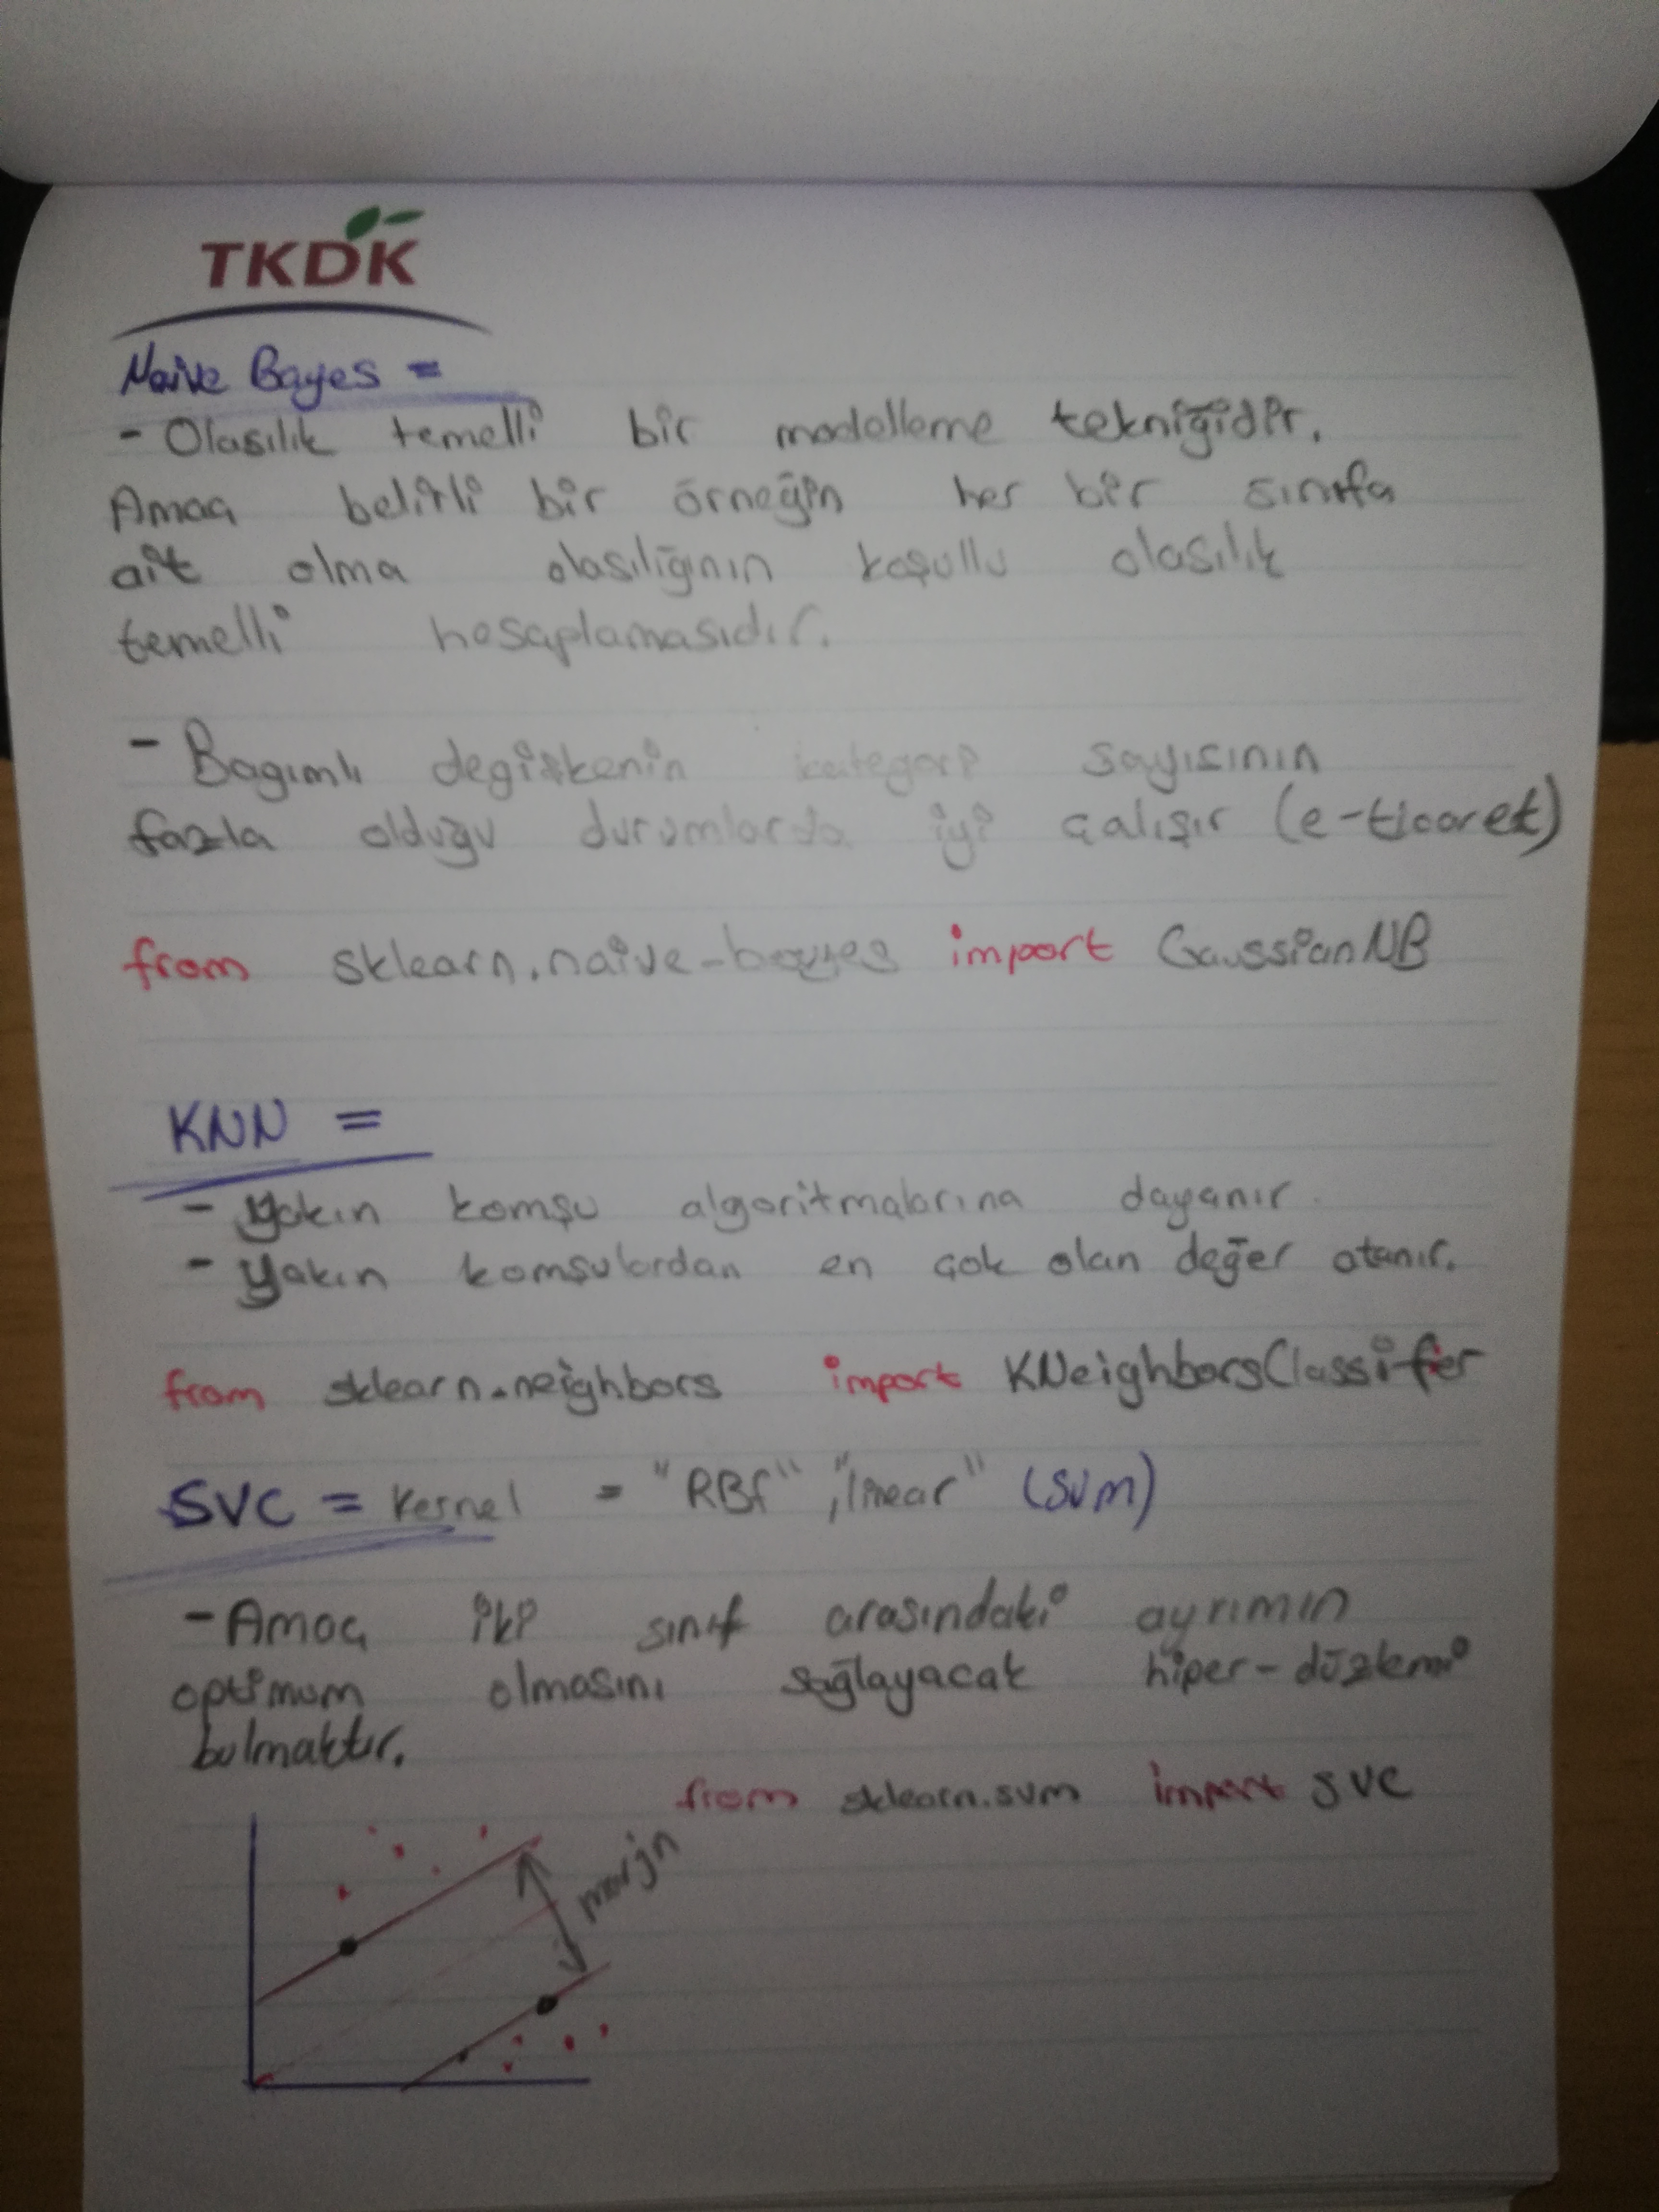 TKDK
Naive Bayes =
- Olasılık temelli bir modelleme tekniğidir.
Amaç belirli bir örneğin her bir sınıfa
ait olma olasılığının koşullu olasılık
temelli hesaplamasıdır.
- Bagımlı degişkenin kategori sayısının
fazla olduğu durumlarda iyi çalışır (e-ticaret)
from sklearn.naive-bayes import GaussianNB
KNN =
- Yakın komşu algoritmalarına dayanır.
- Yakın komşulardan en çok olan değer atanır.
from sklearn.neighbors import KNeighborsClassifer
SVC = Kernel = "RBf", "linear" (SVM)
- Amaç iki sınıf arasındaki ayrımın
optimum olmasını sağlayacak hiper-düzlemi
bulmaktır.
from sklearn.svm import SVC
marjn